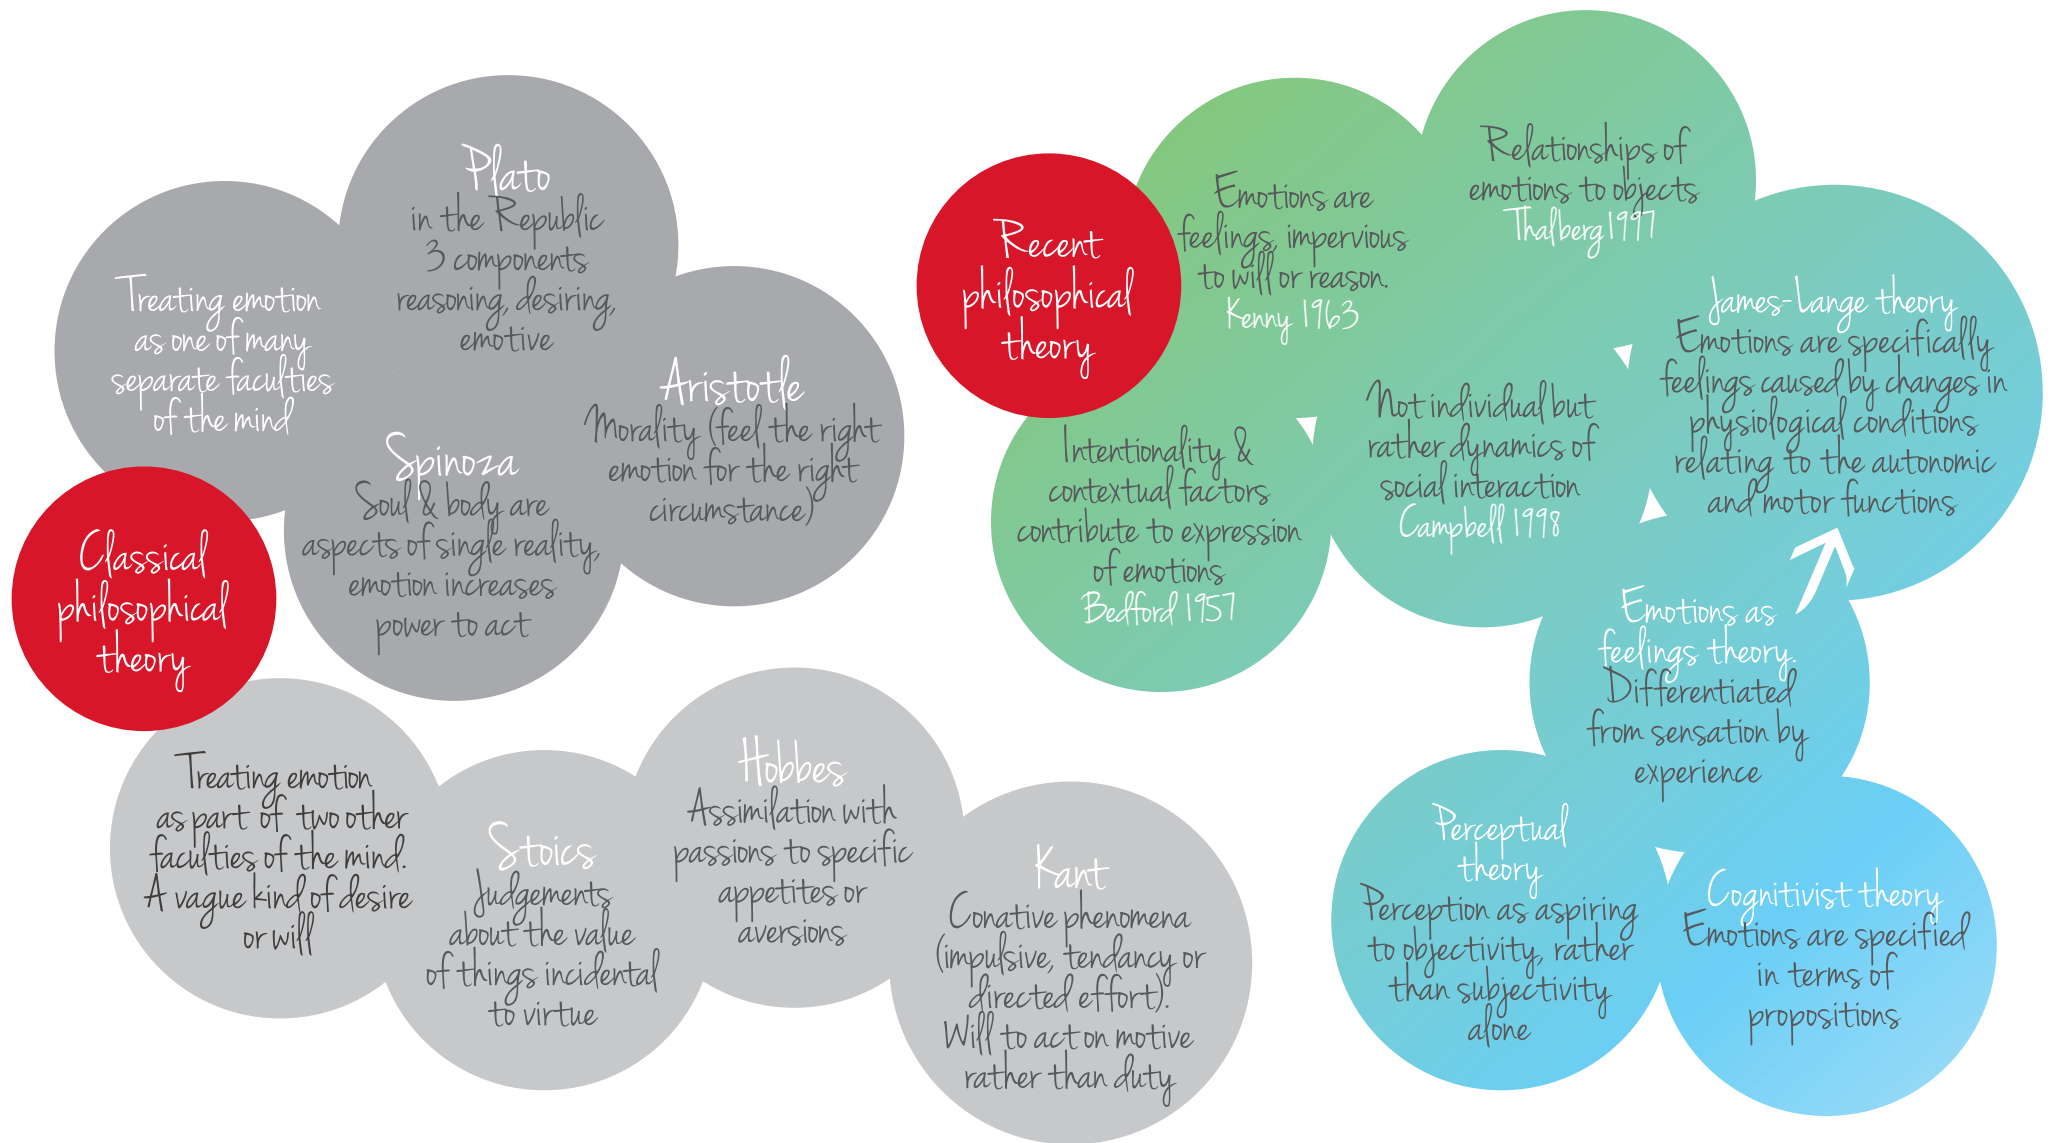 Classical
philosophical
theory
Treating emotion
as one of many
separate faculties
of the mind
Plato
in the Republic
3 components
reasoning, desiring,
emotive
Spinoza
Soul & body are
aspects of single reality,
emotion increases
power to act
Aristotle
Morality (feel the right
emotion for the right
circumstance)
Treating emotion
as part of two other
faculties of the mind.
A vague kind of desire
or will
Stoics
Judgements
about the value
of things incidental
to virtue
Hobbes
Assimilation with
passions to specific
appetites or
aversions
Kant
Conative phenomena
(impulsive, tendancy or
directed effort).
Will to act on motive
rather than duty
Recent
philosophical
theory
Emotions are
feelings, impervious
to will or reason.
Kenny 1963
Relationships of
emotions to objects
Thalberg 1997
Intentionality &
contextual factors
contribute to expression
of emotions
Bedford 1957
Not individual but
rather dynamics of
social interaction
Campbell 1998
James-Lange theory
Emotions are specifically
feelings caused by changes in
physiological conditions
relating to the autonomic
and motor functions
Emotions as
feelings theory.
Differentiated
from sensation by
experience
Perceptual
theory
Perception as aspiring
to objectivity, rather
than subjectivity
alone
Cognitivist theory
Emotions are specified
in terms of
propositions